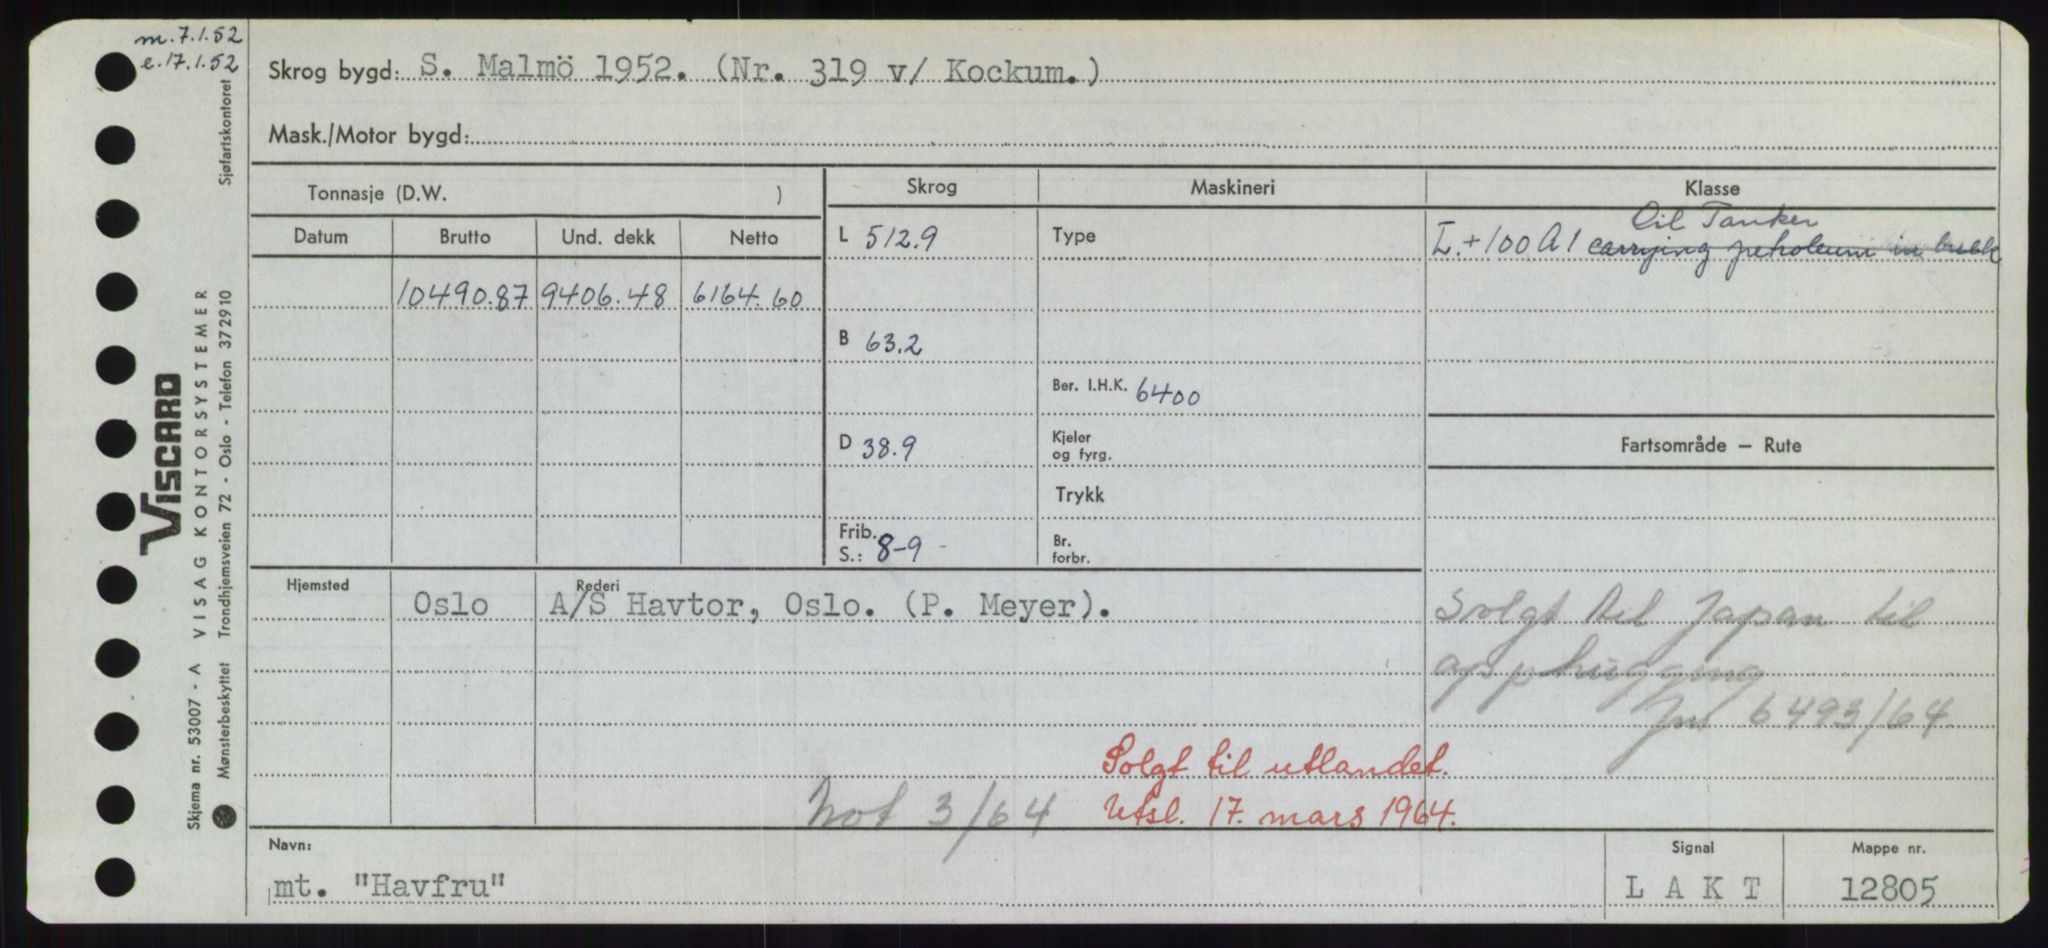 m. 7.1.52
e. 17.1.52
Skrog bygd: S. Malmö 1952. (Nr. 319 v/ Kockum.)
Mask./Motor bygd:
Tonnasje (D.W. )
Skrog
Maskineri
Klasse
Datum
Brutto
Und. dekk
Netto
L 512.9
Type
Oil Tanker
L.+100 A1 carrying petroleum in bulk
10490.87 9406.48 6164.60
B 63.2
Ber. I.H.K. 6400
D 38.9
Kjeler
og fyrg.
Fartsområde – Rute
Trykk
Frib.
S.: 8-9
Br.
forbr.
Hjemsted
Oslo
Rederi
A/S Havtor, Oslo. (P. Meyer).
Solgt til Japan til
opphugging
Jnr 6493/64
Solgt til utlandet.
Not 3/64
Utsl. 17. mars 1964.
Navn:
mt. "Havfru"
Signal
L A K T
Mappe nr.
12805
Skjema nr. 53007 - A VISAG KONTORSYSTEMER
VISCARD
Mønsterbeskyttet Trondhjemsveien 72 - Oslo - Telefon 372910 Sjøfartskontoret